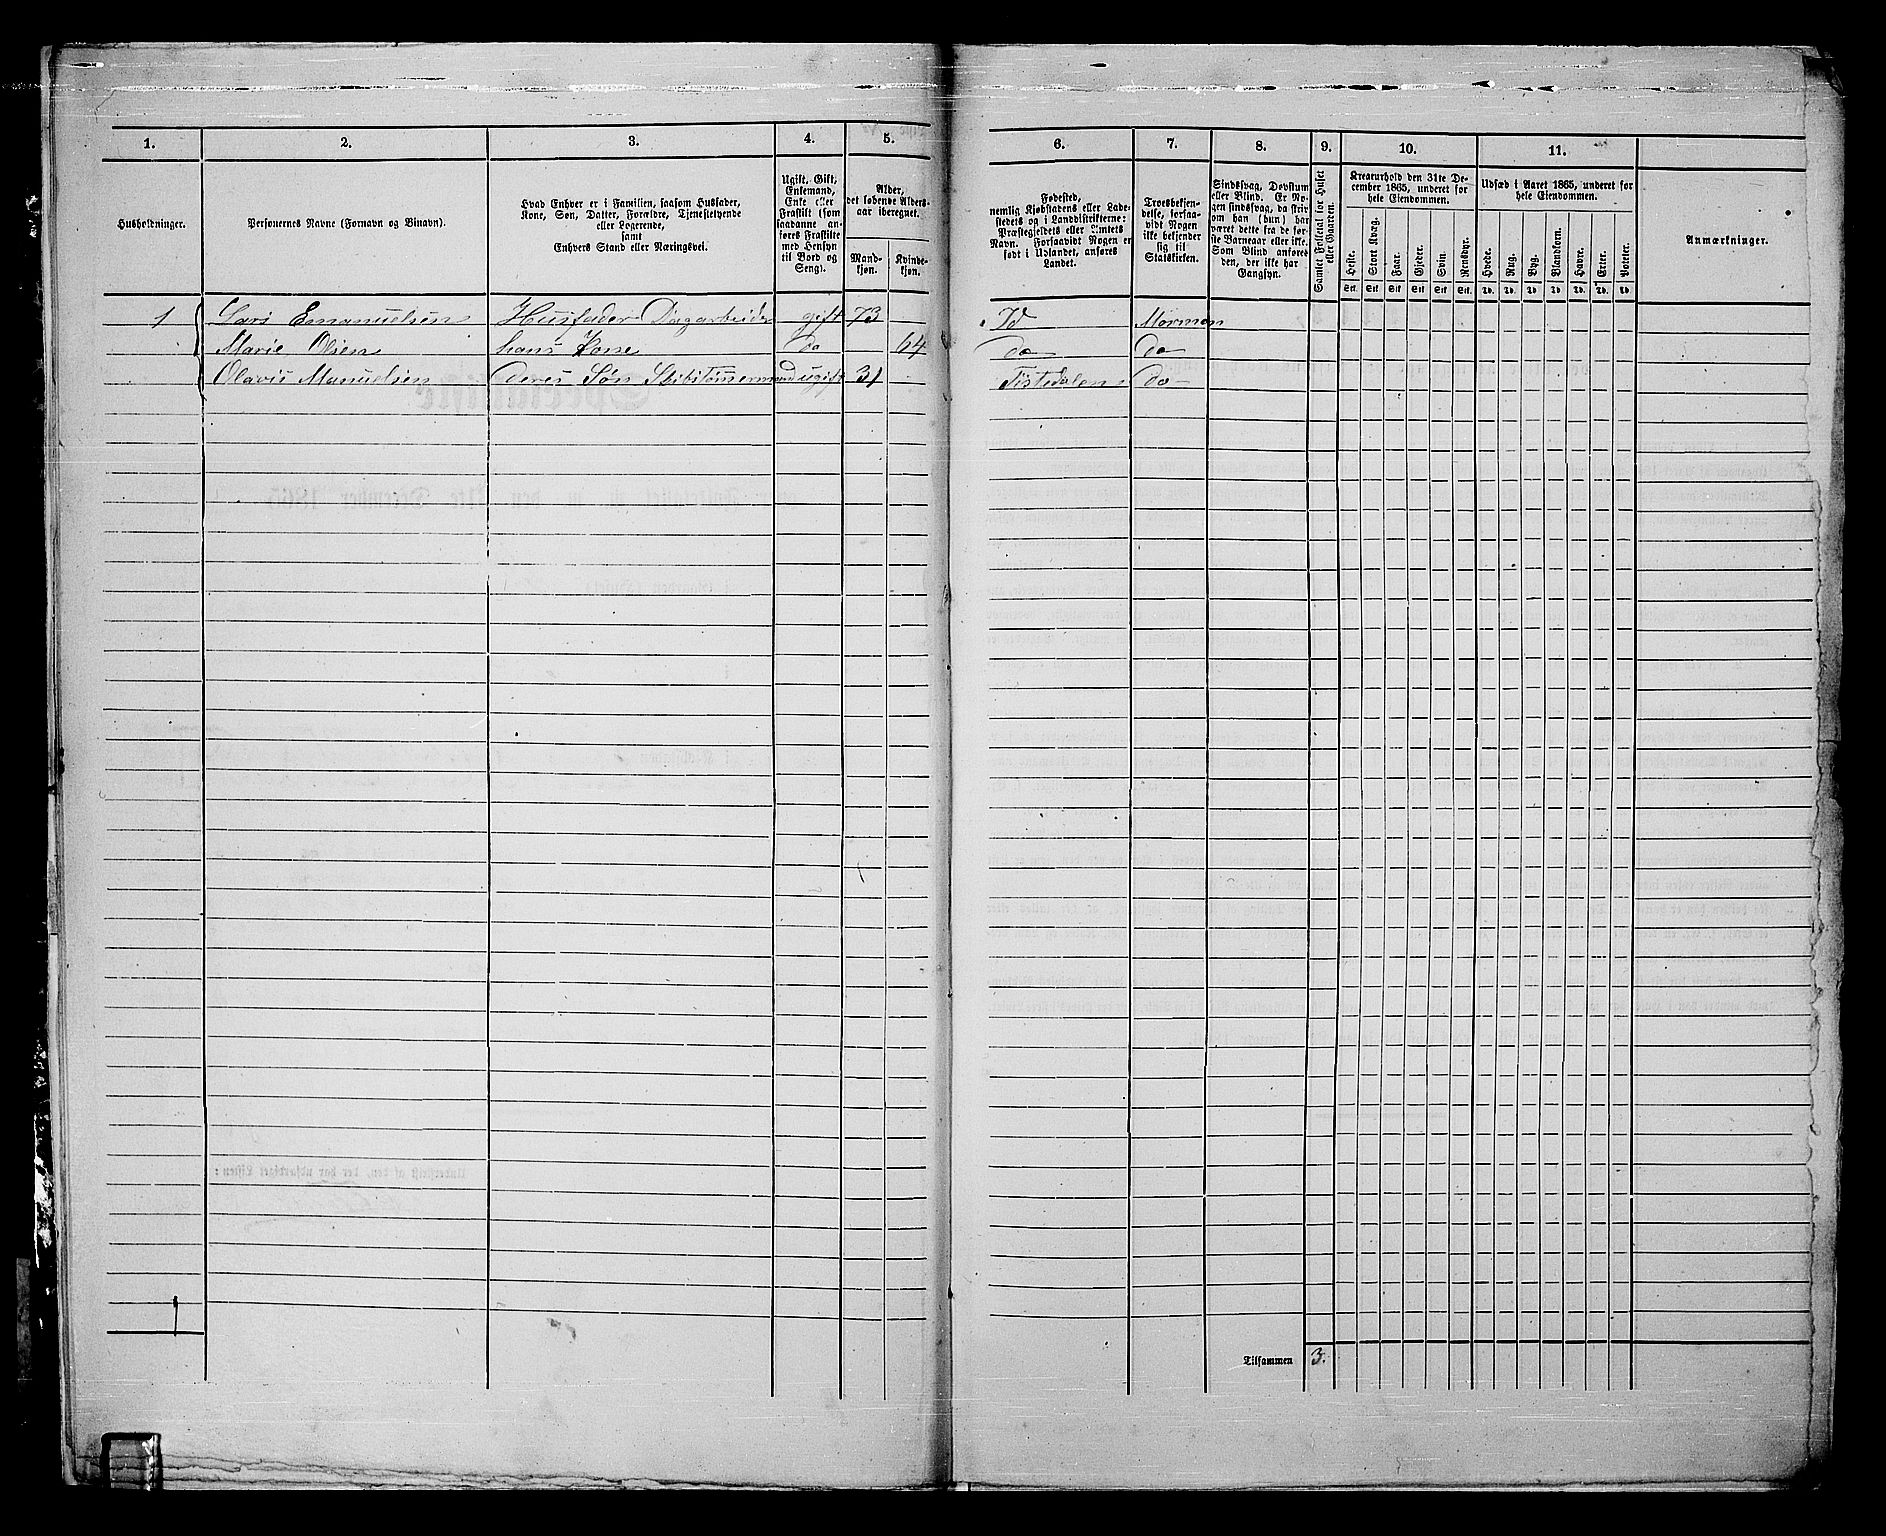 1. 2. 3. 4. 5. 6. 7. 8. 9. 10. 11.
Husholdninger.
Personernes Navne (Fornavn og Binavn).
Hvad Enhver er i Familien, saasom Husfader,
Kone, Søn, Datter, Forældre, Tjenestetyende
eller Logerende,
samt
Enhvers Stand eller Næringsvei.
Ugift, Gift,
Enkemand,
Enke eller
Fraskilt (som
saadanne an-
føres Fraskilte
med Hensyn
til Bord og
Seng).
Alder,
det løbende Alders-
aar iberegnet.
Mand-
kjøn.
Kvinde-
kjøn.
Fødested,
nemlig Kjøbstadens eller Lade-
stedets og i Landdistrikterne:
Præstegjeldets eller Amtets
Navn. Forsaavidt Nogen er
født i Udlandet, anføres
Landet.
Troesbekjen-
delse, forsaa-
vidt Nogen
ikke bekjender
sig til
Statskirken.
Sindssvag, Døvstum
eller Blind. Er No-
gen sindssvag, da skriv
om han (hun) har
været dette fra de før-
ste Barneaar eller ikke.
Som Blind anføres
den, der ikke har
Gangsyn.
Samlet Folketal for Huset
eller Gaarden.
Kreaturhold den 31te De-
cember 1865, underet for
hele Eiendommen.
Heste. Stort Kvæg. Faar. Gjeder. Svin. Rensdyr.
Stk. Stk. Stk. Stk. Stk. Stk.
Udsæd i Aaret 1865, underet for
hele Eiendommen.
Hvede. Rug. Byg. Blandkorn. Havre. Erter. Poteter.
Td. Td. Td. Td. Td. Td. Td.
Anmærkninger.
1 Lars Emanuelsen Husfader Dagarbeider gift 73 Id Mormon
Marie Olsen hans Kone do 64 do do
Olavis Manuelsen deres Søn Skibstømmermand ugift 31 Tistedalen do
1
Tilsammen 3.